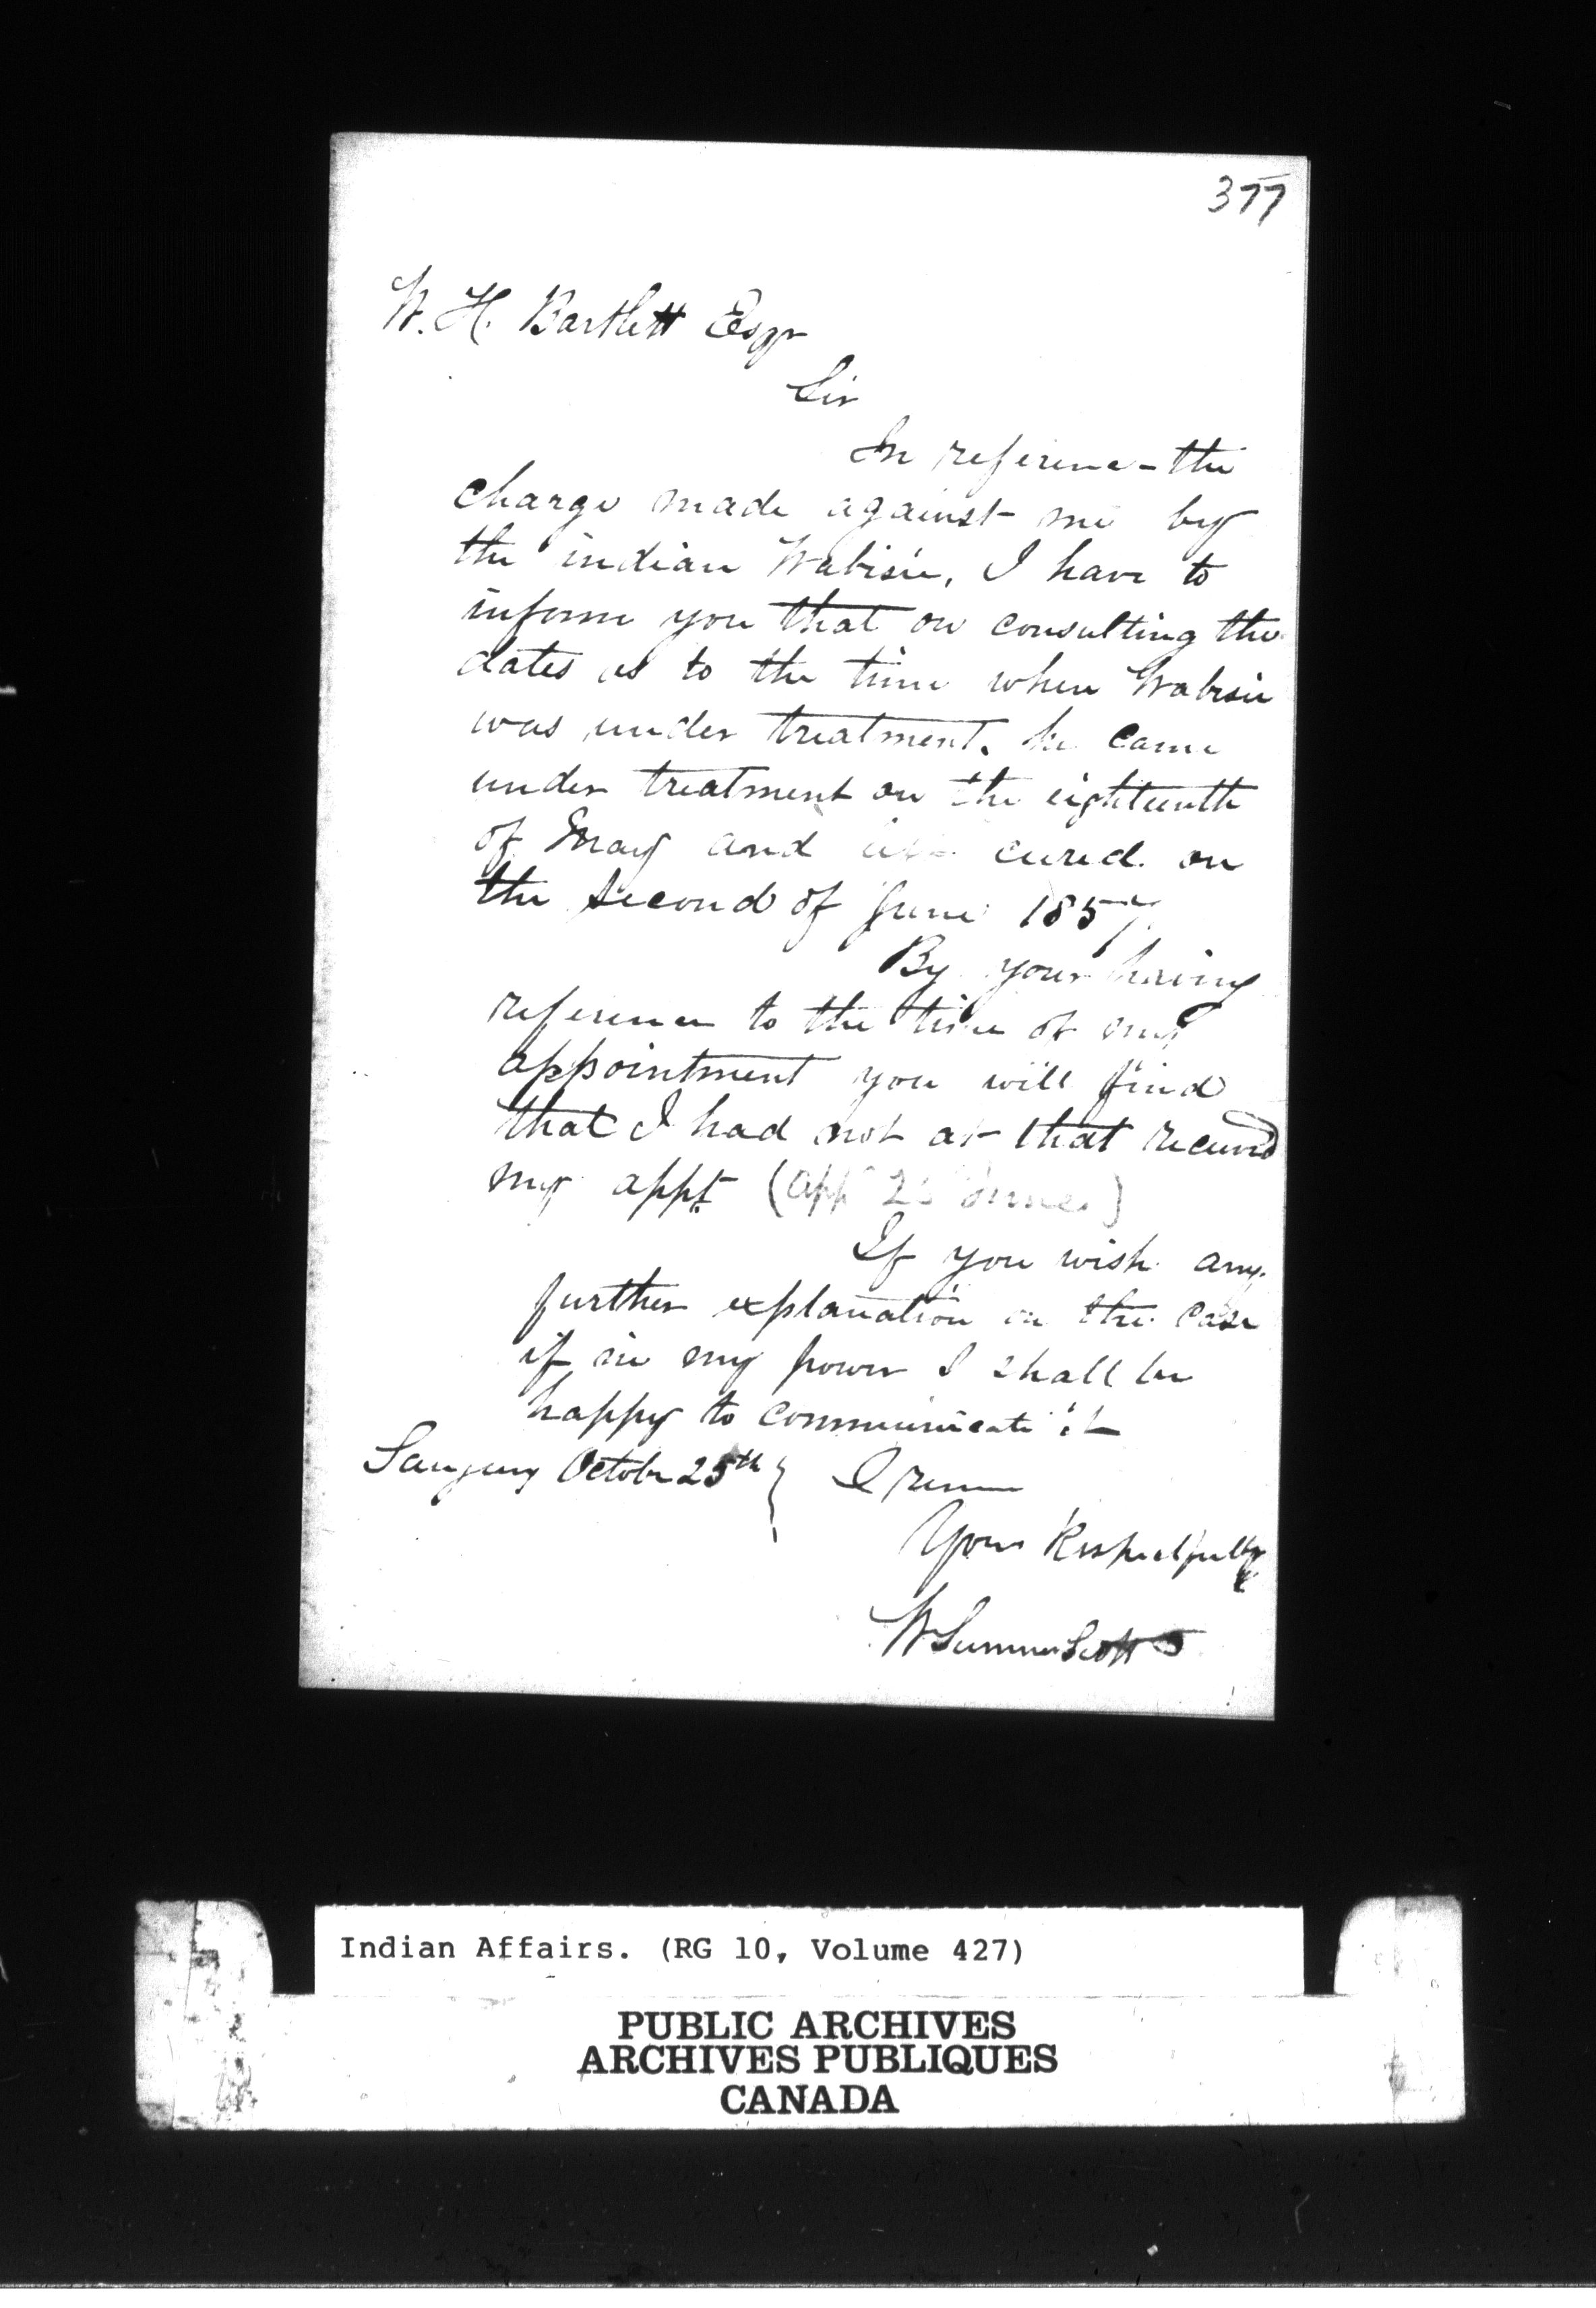 377
W. H. Bartlett Esqr
Sir
In reference - the
charge made against me by
the indian Wabisie, I have to
inform you that on consulting the
dates as to the time when Wabisie
was under treatment. he came
under treatment on the eighteenth
of May and cured on
the second of June 1857
By your having
reference to the time of my
appointment you will find
that I had not at that received
my appt (app 2 June)
If you wish any
further explanation on the case
if in my power I shall be
happy to communicate it
Saugeen October 25th } I remain
Your Respectfully
W Sumner Scott
Indian Affairs. (RG 10, Volume 427)
PUBLIC ARCHIVES
ARCHIVES PUBLIQUES
CANADA